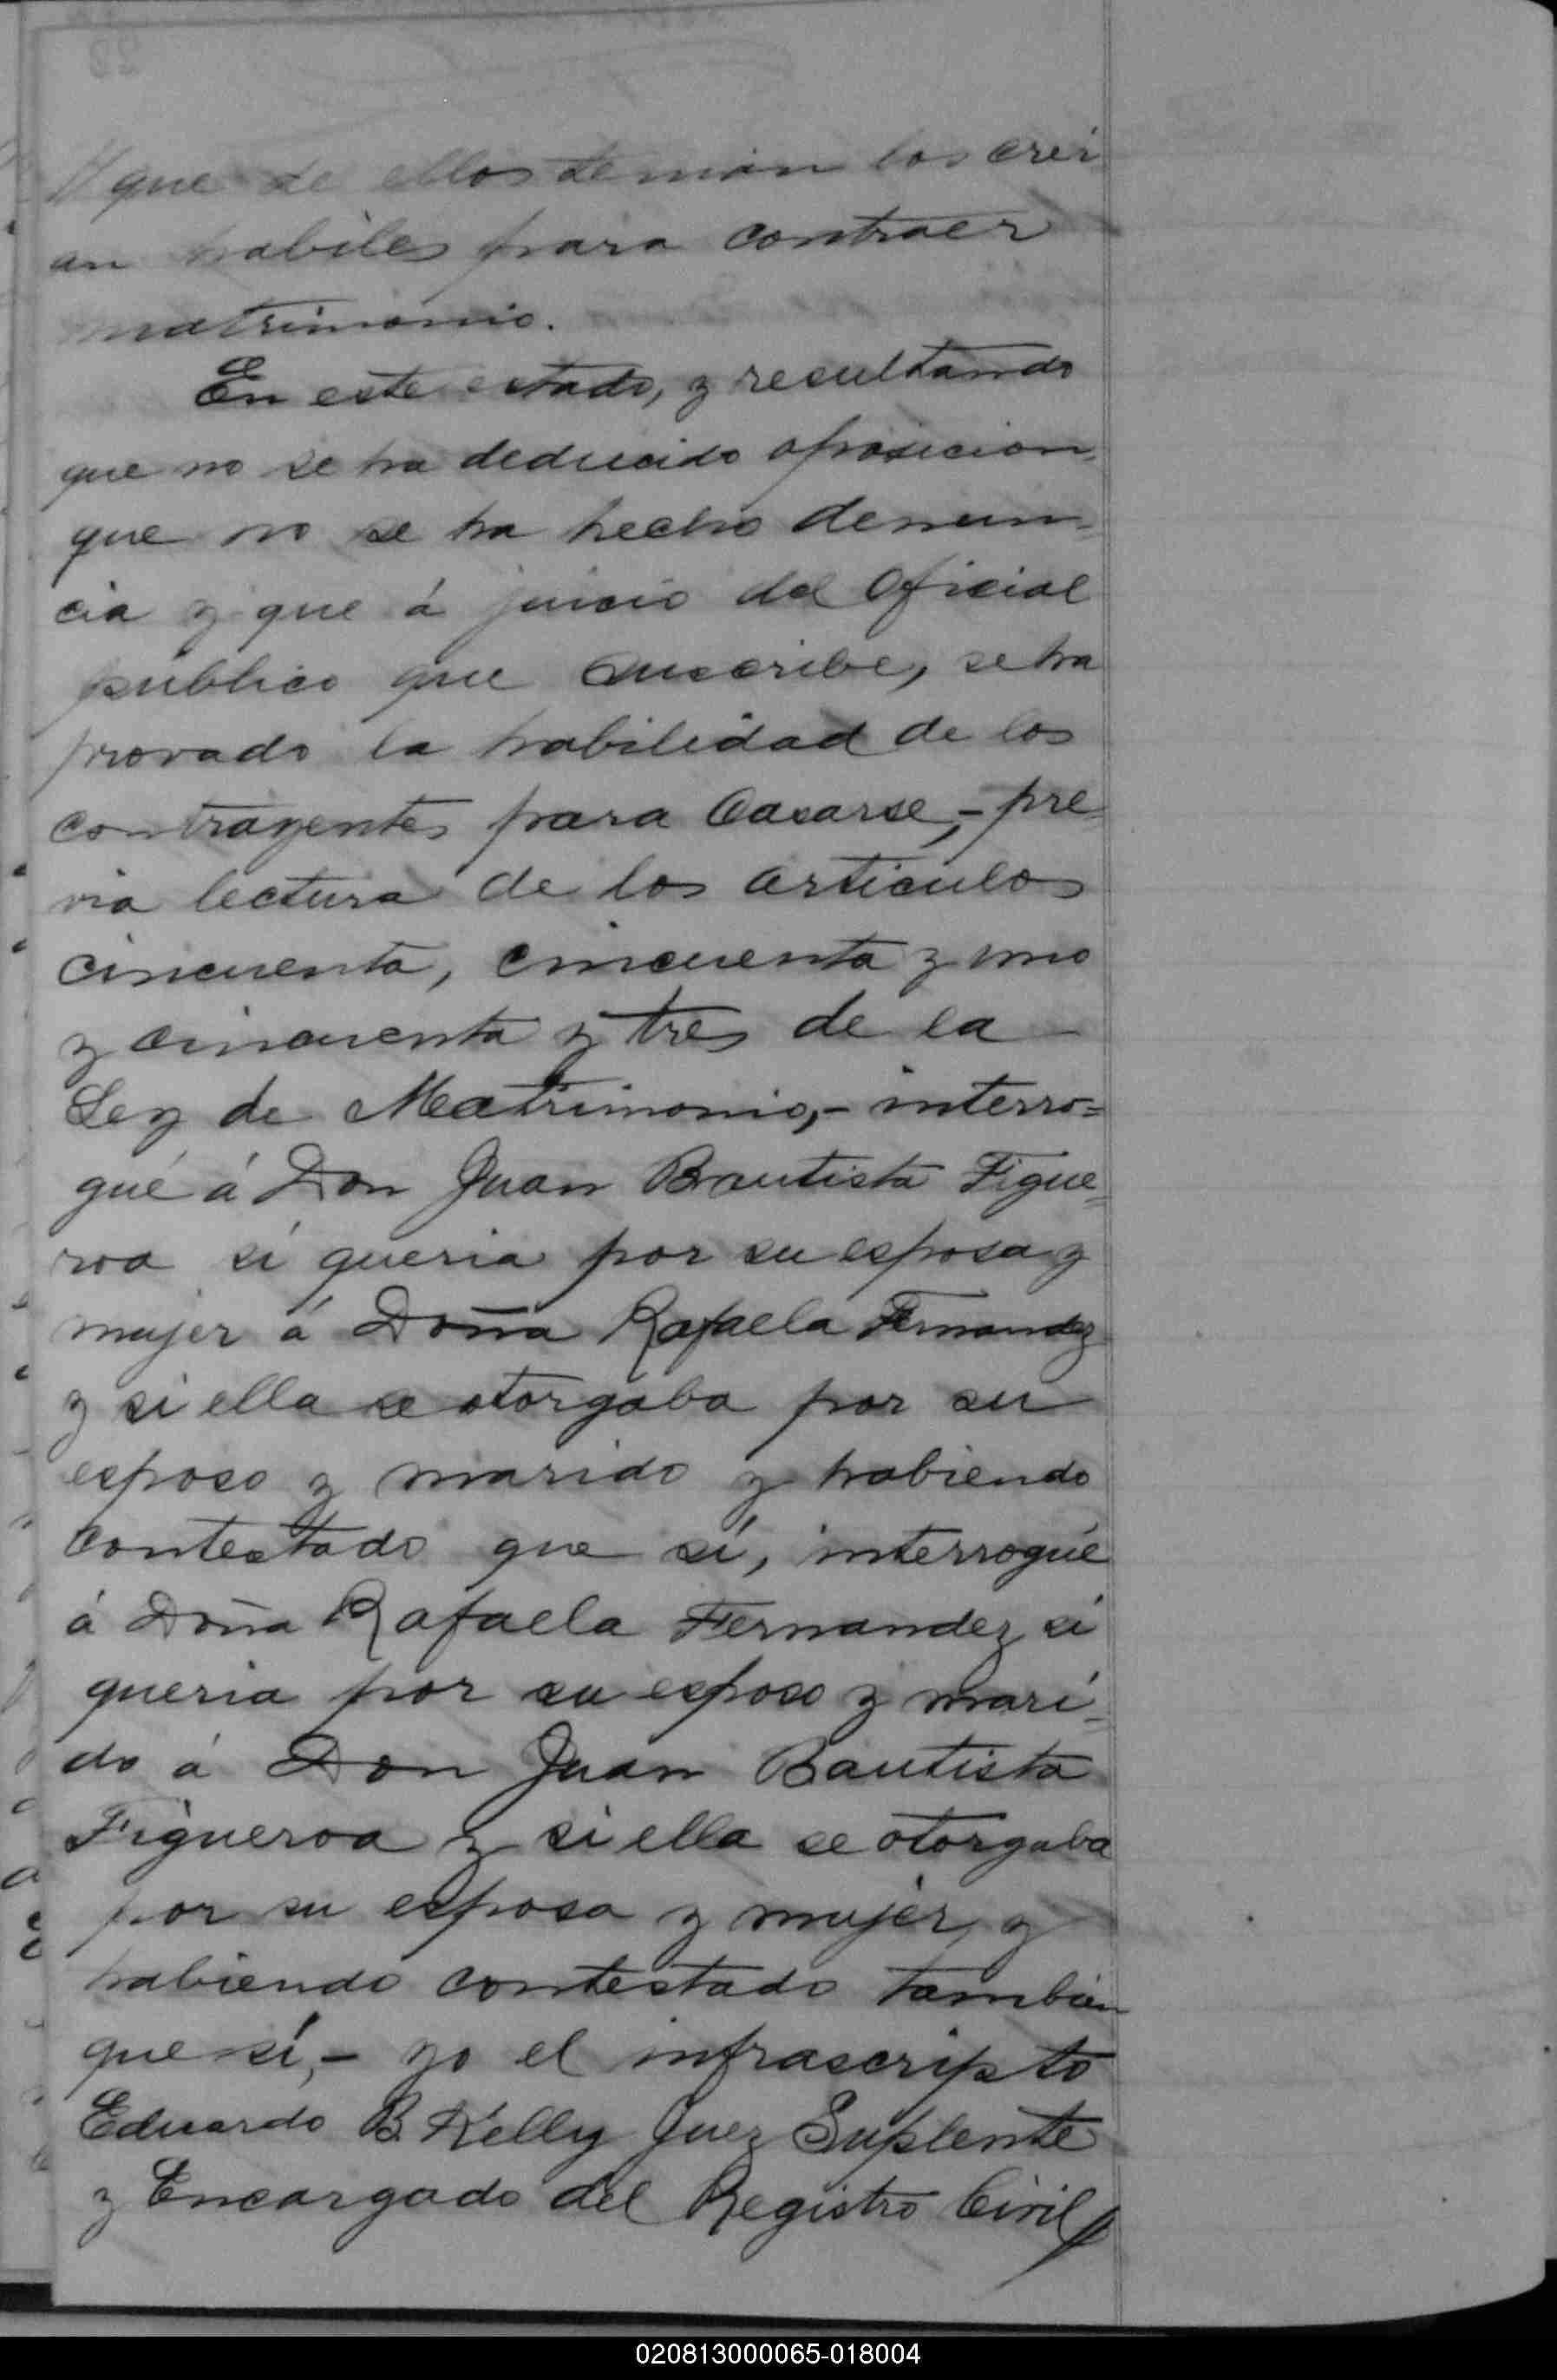 que de ellos tenian los crei
an habiles para contraer
matrimonio.
En este estado, y resultando
que no se ha deducido oposicion,
que no se ha hecho denun-
cia y que á juicio del Oficial
publico que suscribe, se ha
provado la habilidad de los
contrayentes para Casarse,- pre-
via lectura de los articulos
cincuenta, cincuenta y uno
y cincuenta y tres de la -
Ley de Matrimonio,- interro=
gué á Don Juan Bautista Figue=
roa si queria por su esposa y
mujer á Doña Rafaela Fernandez
y si ella se otorgaba por su
esposo y marido y habiendo
contestado que sí, interrogué
á Doña Rafaela Fernandez si
queria por su esposo y mari=
do á Don Juan Bautista
Figueroa y si ella se otorgaba
por su esposa y mujer, y
habiendo contestado tambien
que sí,- yo el infrascripto
Eduardo B. Kelly Juez Suplente
y Encargado del Registro Civil
020813000065-018004